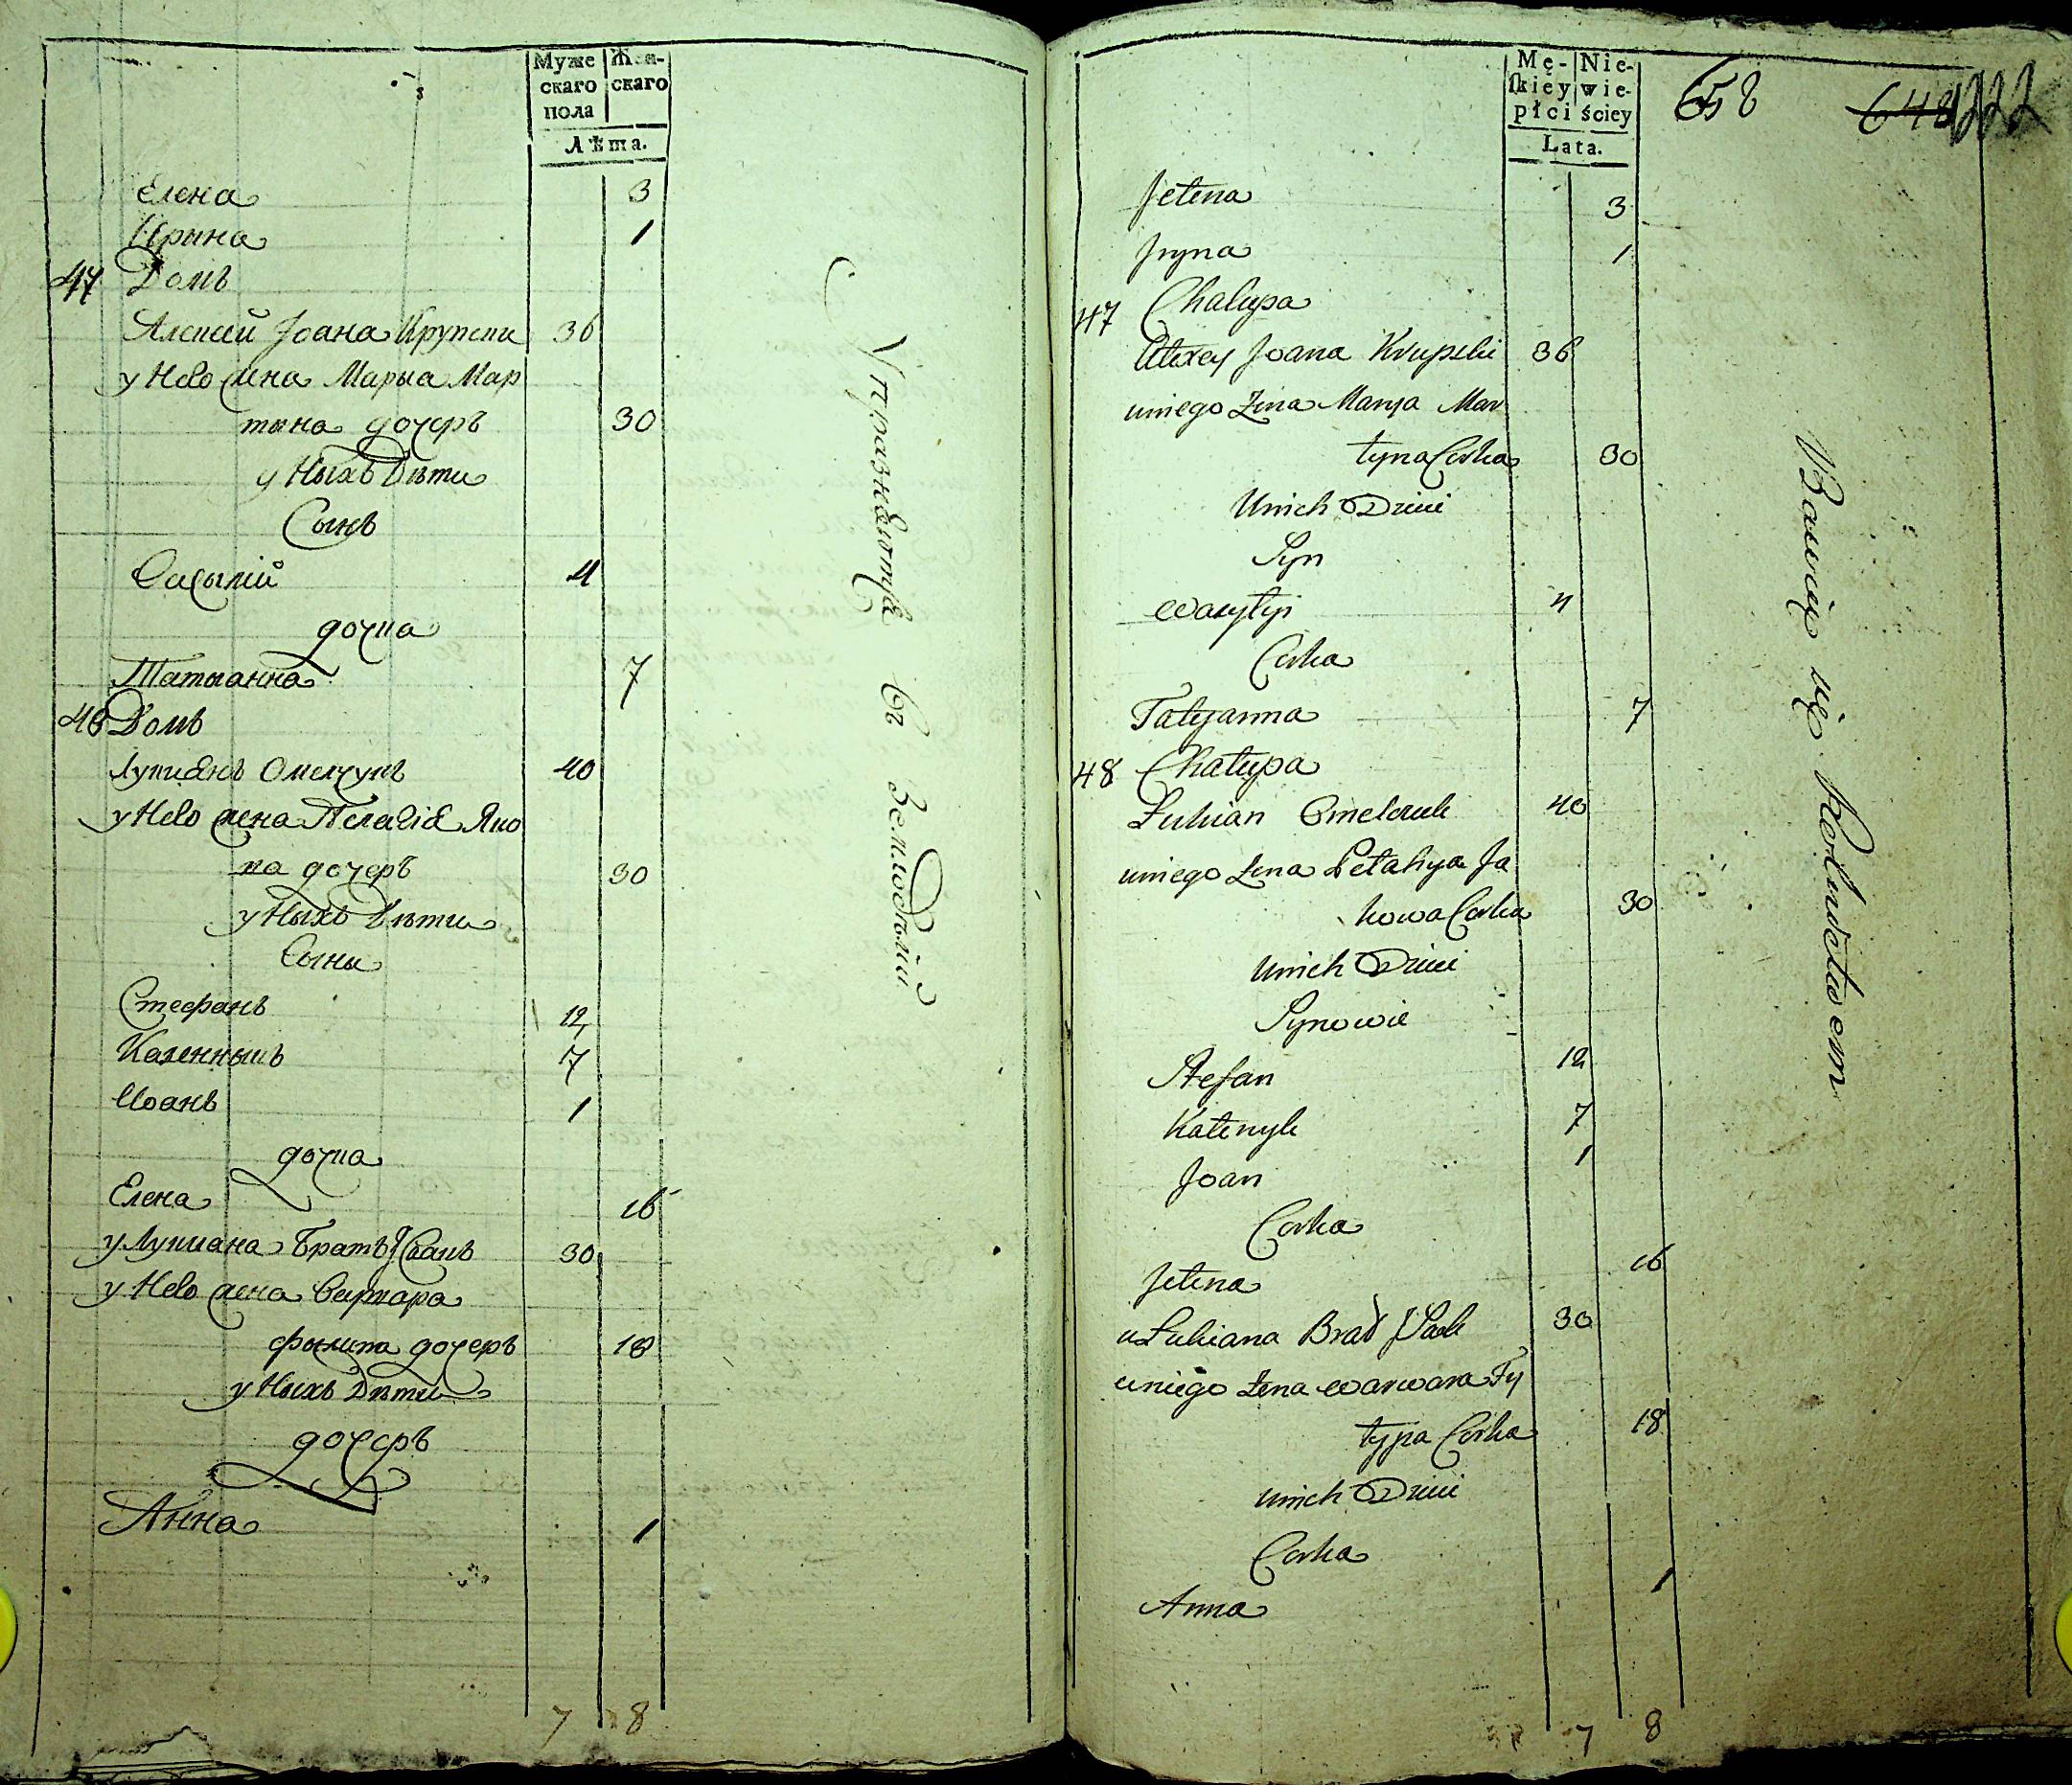 Муже Жен-
скаго скаго
пола
Лѣта.
Елена 3
Ирына 1
47 Домъ
Алексей Іоана Крупски 36
у Него жена Марыа Мар
тына дочеръ 30
у Ныхъ Дѣти
Сынъ
Василій 4
дочка
Татыанна 7
48 Домъ
Лукианъ Омелчукъ 40
у Него жена Пелагіа Яко
ва дочеръ 30
у Ныхъ Дѣти
Сыны
Стефанъ 12
Каленныкъ 7
Иоанъ 1
дочка
Елена 16
у Лукиана Братъ Исакъ 30
у Него жена Варвара
Фылипа дочеръ 18
у Ныхъ Дѣти
дочеръ
Анна 1
7 8
Упражняются въ Земледѣліи
Mę- Nie-
skiey wie-
płci ściey
Lata.
658 648 222
Jelena 3
Jryna 1
47 Chałupa
Alexey Joana Krupski 36
uniego Zena Marya Mar
tyna Corka 30
Unich Dzieci
Syn
Wasylij 4
Corka
Tatyanna 7
48 Chałupa
Łukian Omelczuk 40
uniego Zena Pelahya Ja
kowa Corka 30
Unich Dzieci
Synowie
Stefan 12
Kalenyk 7
Joan 1
Corka
Jelena 16
u Łukiana Brat JSaak 30
uniego Zena Warwara Fy
lypa Corka 18
unich Dzieci
Corka
Anna 1
7 8
Bawią się Rolnictwem